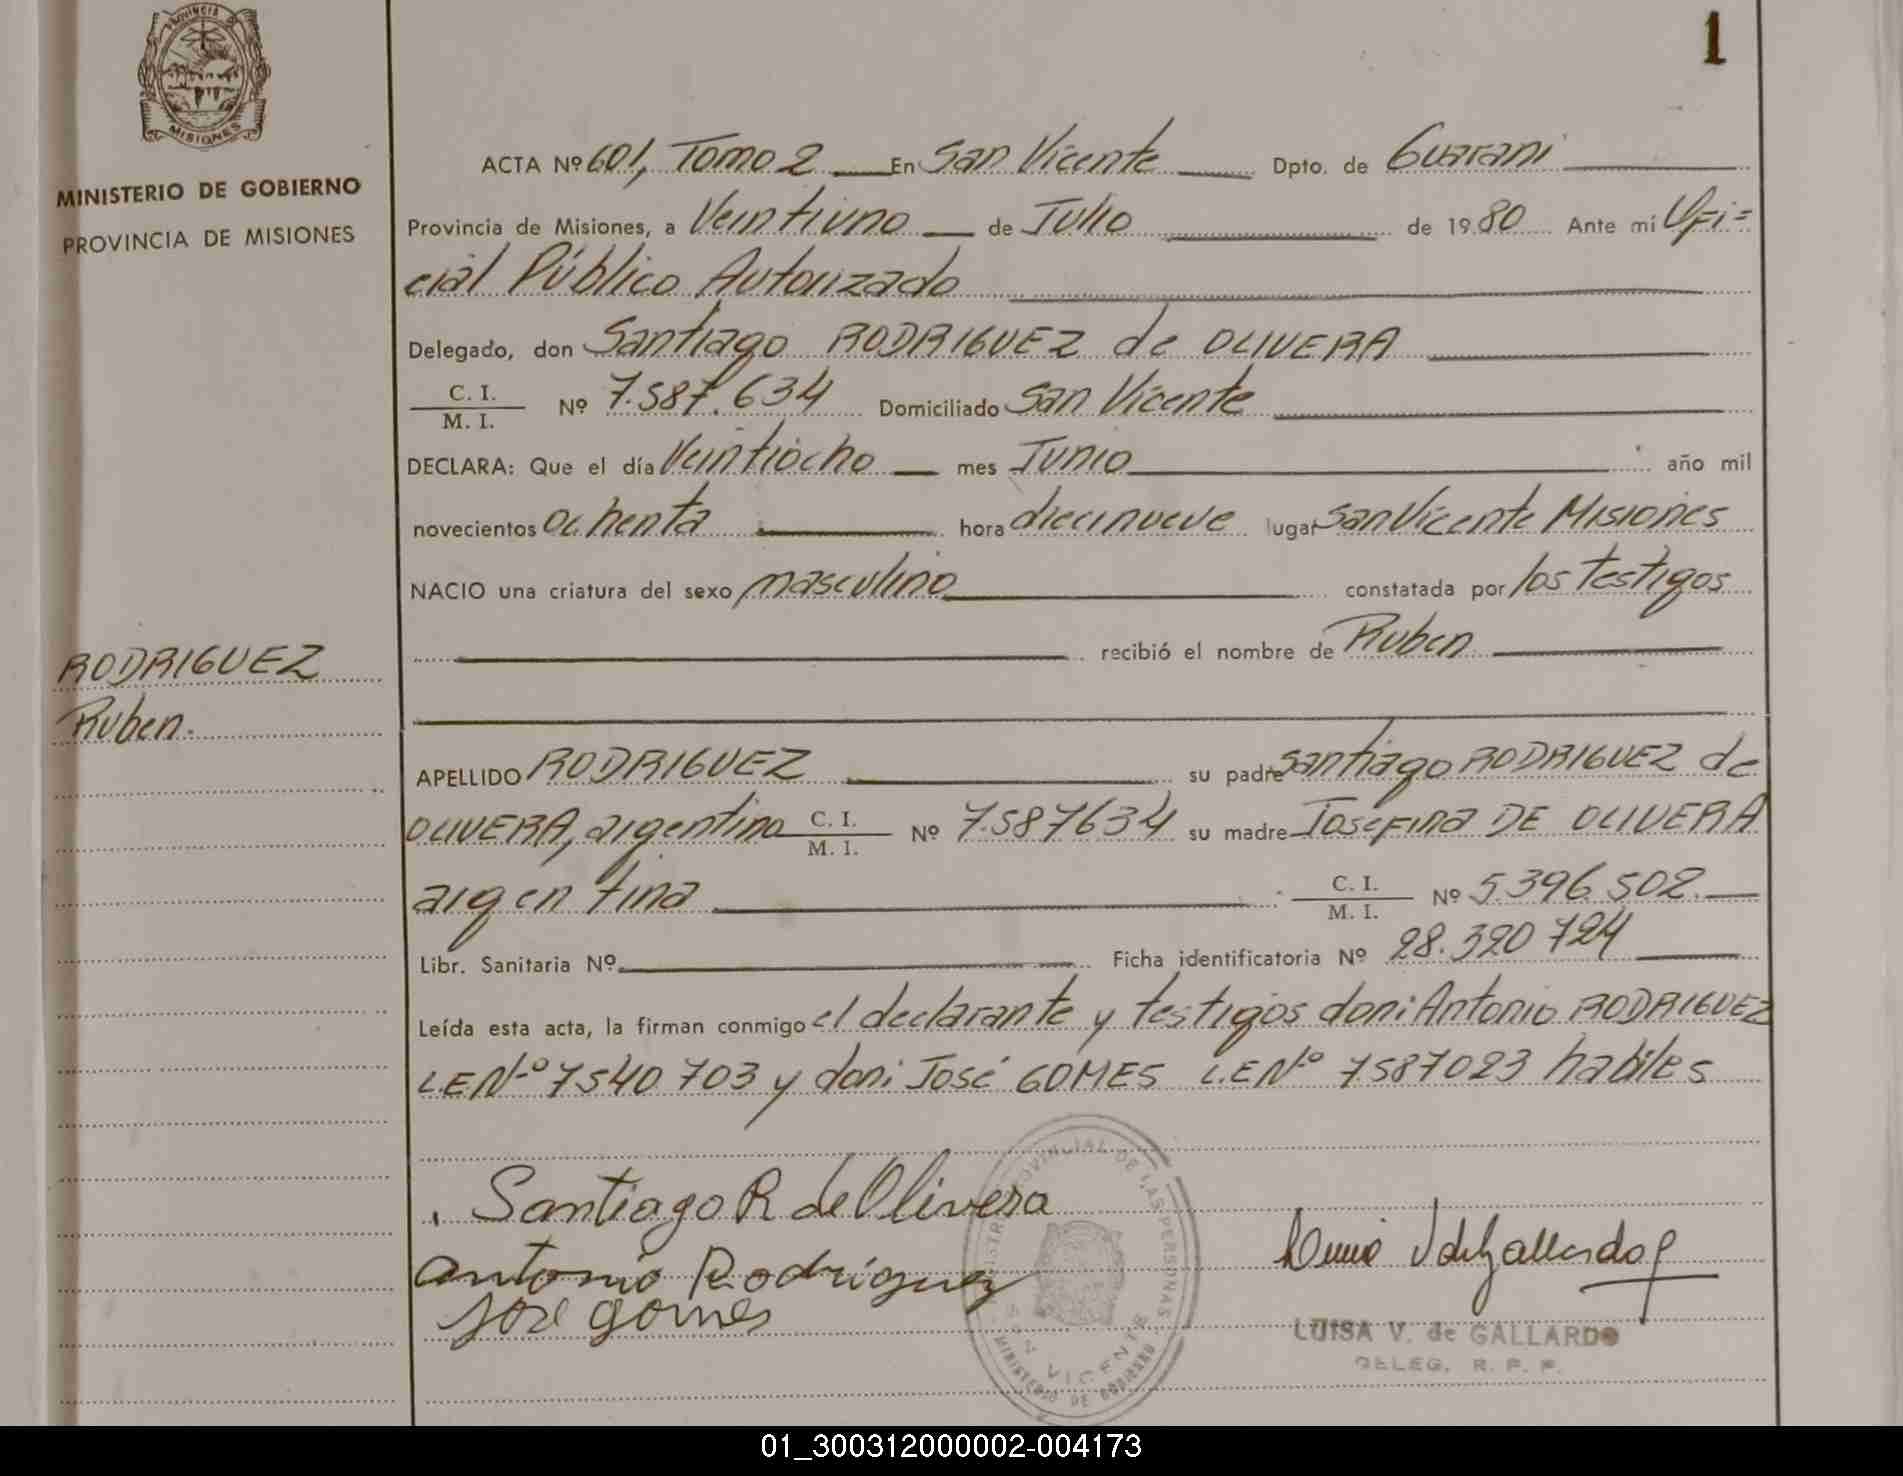 1
PROVINCIA DE
MISIONES
MINISTERIO DE GOBIERNO
PROVINCIA DE MISIONES
ACTA Nº 601, Tomo 2 En San Vicente Dpto. de Guarani
Provincia de Misiones, a Veintiuno de Julio de 1980 Ante mí Ofi=
cial Público Autorizado
Delegado, don Santiago RODRIGUEZ de OLIVERA
C. I.
M. I. Nº 7.587.634 Domiciliado San Vicente
DECLARA: Que el día Veintiocho mes Junio año mil
novecientos ochenta hora diecinueve lugar San Vicente Misiones
NACIO una criatura del sexo masculino constatada por los testigos
recibió el nombre de Ruben
RODRIGUEZ
Ruben.
APELLIDO RODRIGUEZ su padre Santiago RODRIGUEZ de
OLIVERA, argentino C. I. M. I. Nº 7.587634 su madre Josefina DE OLIVERA
argentina C. I. M. I. Nº 5.396.502.
Libr. Sanitaria Nº Ficha identificatoria Nº 28.320 724
Leída esta acta, la firman conmigo el declarante y testigos don: Antonio RODRIGUEZ
L.E Nº 7540.703 y don: José GOMES L.E Nº 7587023 habiles
Santiago R de Olivera
Antonio Rodriguez
José gomes
PROVINCIAL DE LAS PERSONAS
SAN VICENTE
MINISTERIO DE GOBIERNO
LUISA V. de GALLARDO
DELEG. R. P. P.
01_300312000002-004173